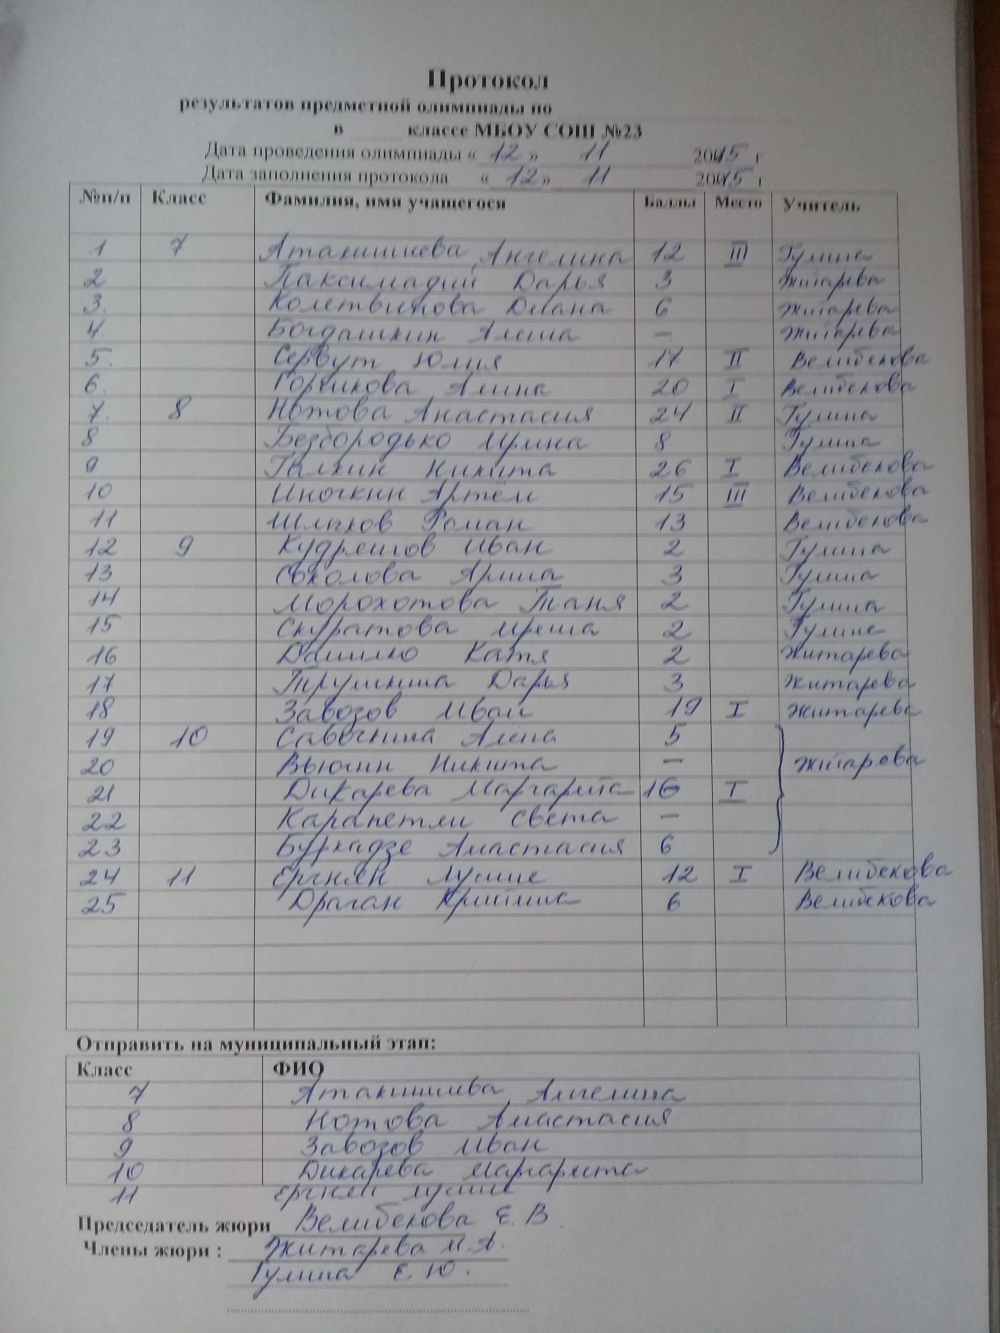 Протокол
результатов предметной олимпиады по
в классе МБОУ СОШ №23
Дата проведения олимпиады « 12 » 11 2015 г
Дата заполнения протокола « 12 » 11 2015 г
№п/п Класс Фамилия, имя учащегося Баллы Место Учитель
1 7 Атакишиева Ангелина 12 III Гулина
2 Паксимадий Дарья 3 Житарева
3. Колетвинова Диана 6 Житарева
4. Богдашкин Алеша – Житарева
5. Сервут Юлия 17 II Велибекова
6. Горчикова Алина 20 I Велибекова
7. 8 Нотова Анастасия 24 II Гулина
8 Безбородько Ирина 8 Гулина
9 Галкин Никита 26 I Велибекова
10 Иночкин Артем 15 III Велибекова
11 Роман 13 Велибекова
12 9 Кудряшов Иван 2 Гулина
13 Соколова Арина 3 Гулина
14 Морохотова Таня 2 Гулина
15 Скуратова Ириша 2 Гулина
16 Данилко Катя 2 Житарева
17 Трушкина Дарья 3 Житарева
18 Завозов Иван 19 I Житарева
19 10 Савочкина Алена 5
20 Вьюгин Никита – Житарева
21 Дикарева Маргарита 16 I
22 Карапетян Света –
23 Буркадзе Анастасия 6
24 11 Ергнян Лусине 12 I Велибекова
25 Драган Кристина 6 Велибекова
Отправить на муниципальный этап:
Класс ФИО
7 Атакишиева Ангелина
8 Нотова Анастасия
9 Завозов Иван
10 Дикарева Маргарита
11 Ергнян Лусине
Председатель жюри Велибекова Е. В.
Члены жюри : Житарева М.А.
Гулина Е. Ю.